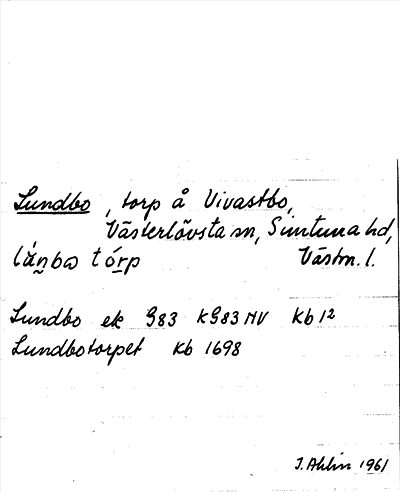 Lundbo, torp å Vivastbo,
Västerlövsta sn, Simtuna hd,
lá̀n̬bɷ tórp Västm. l.
Lundbo ek G83 KG83 NV Kb 1²
Lundbotorpet Kb 1698
J. Ahlin 1961